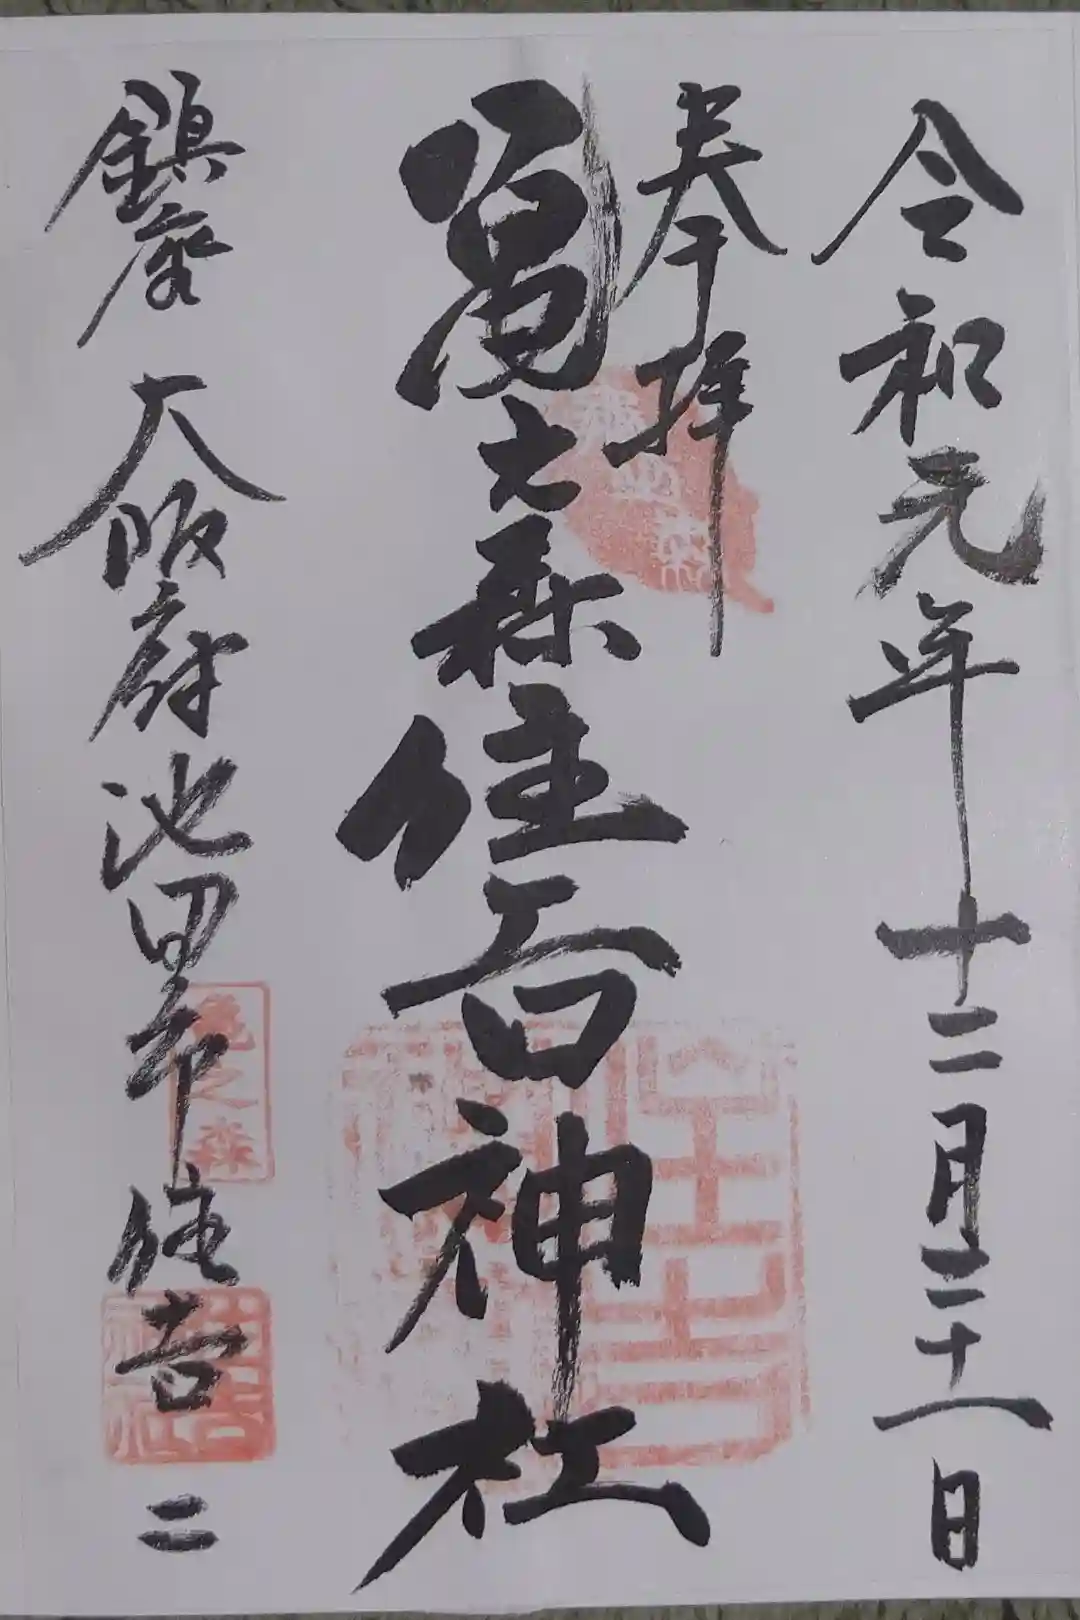 令和元年十二月三十一日
奉拝
亀之森住吉神社
鎮座 大阪府池田市住吉二
亀之森
住吉神社